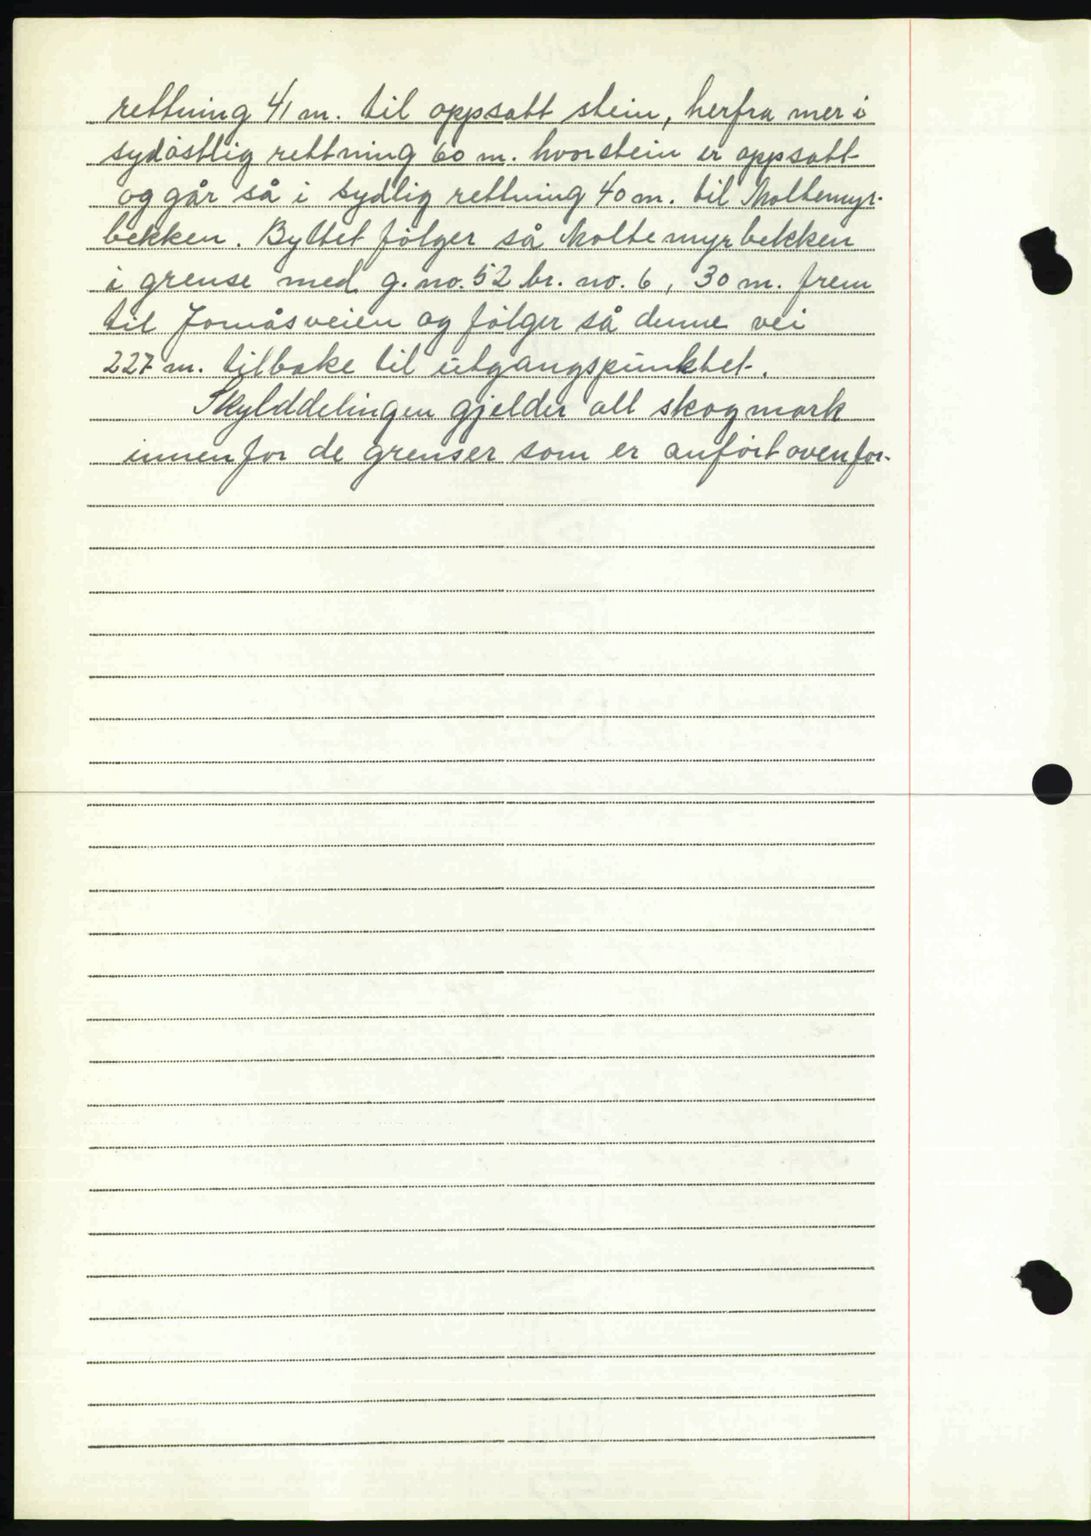 rettning 41 m. til oppsatt stein, herfra mer i
sydöstlig rettning 60 m. hvor stein er oppsatt
og går så i sydlig rettning 40 m. til Moltemyr-
bekken. Byttet fölger så Moltemyrbekken
i grense med g. no. 52 br. no. 6, 30 m. frem
til Jomåsveien og fölger så denne vei
227 m. tilbake til utgangspunktet.
Skylddelingen gjelder all skogmark
innenfor de grenser som er anfört ovenfor.